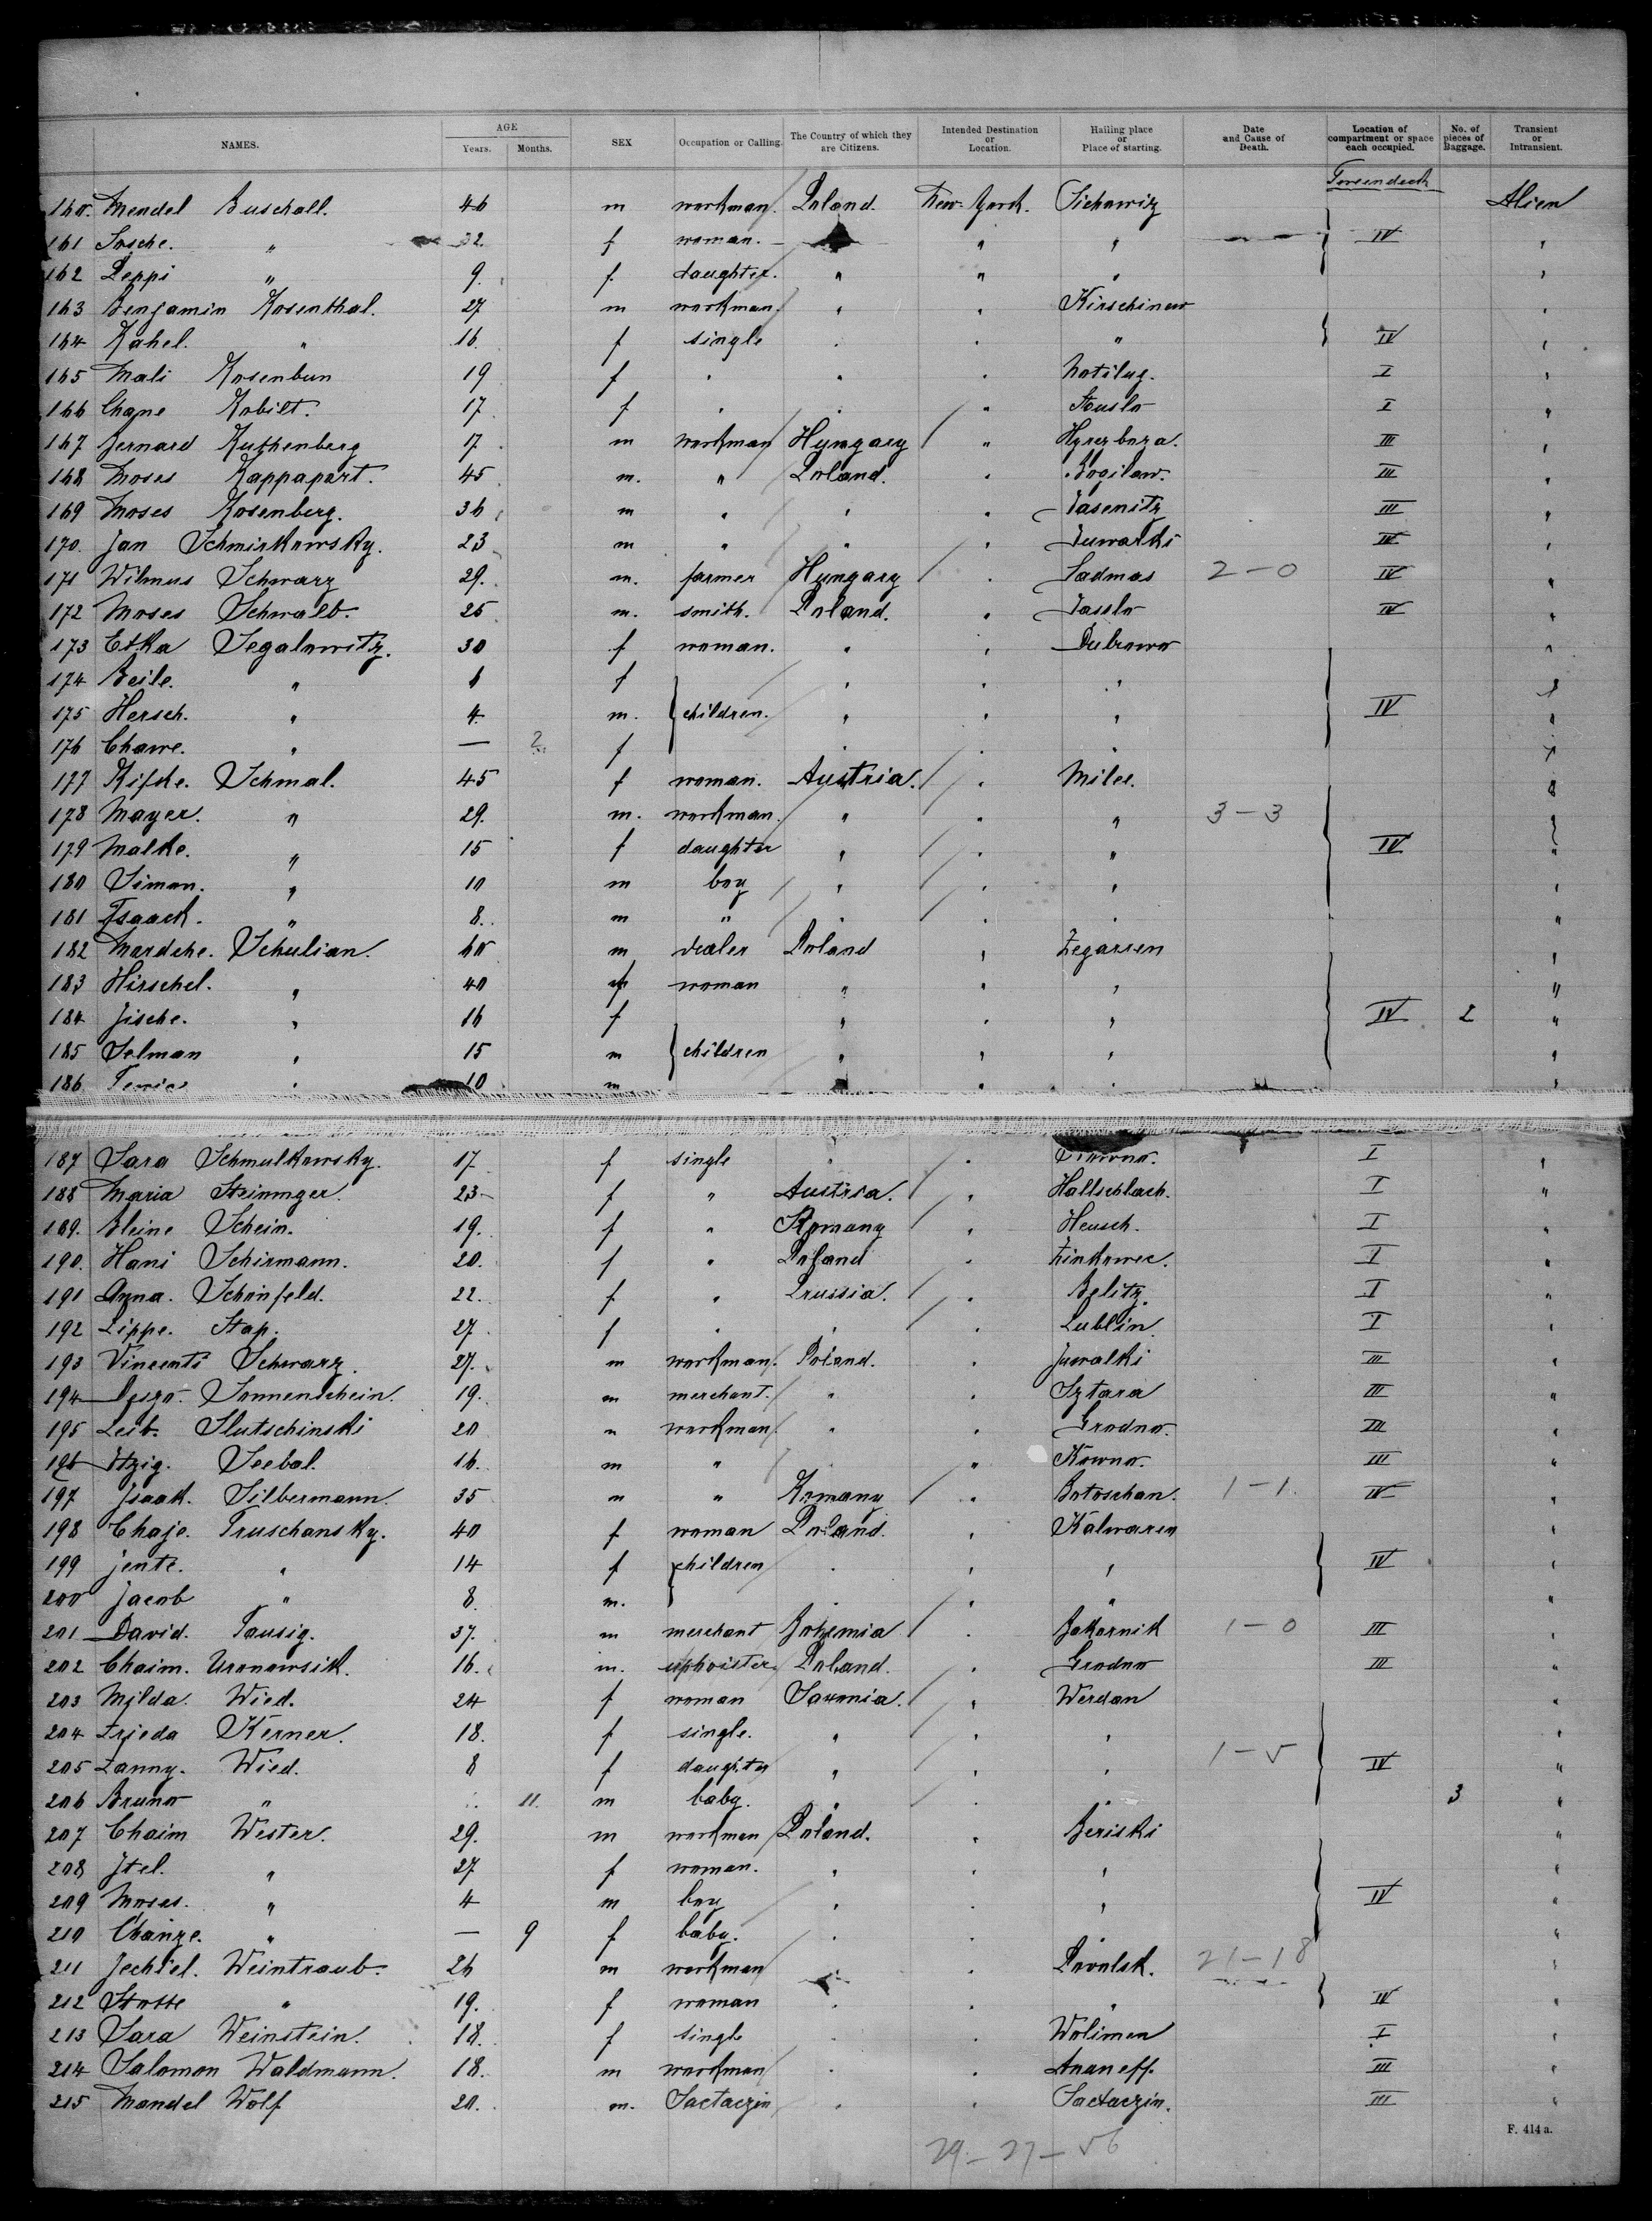 NAMES. AGE Years. Months. SEX Occupation or Calling. The Country of which they are Citizens. Intended Destination or Location. Hailing place or Place of starting. Date and Cause of Death. Location of compartment or space each occupied. No. of pieces of Baggage. Transient or Intransient.
160. Mendel Buschall. 46 m workman. Poland. New-York. Sichowitz Alien
161 Sosche. " 32. f woman. " " IV "
162 Peppi " 9. f. daughter. " " " "
163 Benjamin Rosenthal. 27 m workman. " " Kirschinew "
164 Rahel. " 16. f single " " " IV "
165 Mali Rosenbun 19 f " " " I "
166 Chane Kobilt. 17 f " " " I "
167 Bernard Ruthenberg 17 m workman Hungary " III "
168 Moses Rappaport. 45 m. " Poland. " Bogilaw. III "
169 Moses Rosenberg. 36 m " " " Jasenitz III "
170. Jan Schmirkowsky. 23 m " " " Suwalki IV "
171 Wilmus Schwarz 29. m. farmer Hungary " Sadmas 2-0 IV "
172 Moses Schwalb. 25 m. smith. Poland. " Jasslo IV "
173 Etka Segalowitz. 30 f woman. " " Dubrowo "
174 Beile. " 6 f " " "
175 Hersch. " 4 m. children. " " " IV "
176 Chawe. " — 2 f " " "
177 Rifke. Schmal. 45 f woman. Austria. " Milec. "
178 Mayer. " 29. m. workman. " " " 3-3
179 Malke. " 15 f daughter " " " IV "
180 Siman. " 10 m boy " " " "
181 Isaack. " 8. m " " " " "
182 Mardche. Schulian. 60 m dealer Poland " Zegarren "
183 Hirschel. " 40 f woman " " " "
184 Jische. " 16 f " " " IV 2 "
185 Selman " 15 m children " " " "
186 " 10 m " " " "
187 Sara Schmulkowsky. 17 f single " " I "
188 Maria Steininger. 23 f " Austria. " Hallschlach. I "
189. Bleine Schein. 19. f " Romany " Heusch. I "
190. Hani Schirmann. 20. f " Poland " Zinkowec. I "
191 Anna. Schönfeld. 22. f " Prussia. " Belitz. I "
192 Lippe. Stap. 27 f " " " Lublin. I "
193 Vincenti Schwarz. 27. m workman. Poland. " Suwalki III "
194 Sonnenschein. 19. m merchant. " " Sztara III "
195 Leib. Slutschinski 20 m workman " " Grodno. III "
196 Itzig. Seebal. 16. m " " " Kowno. III "
197 Isaak. Silbermann. 35 m " Romany " Botoschan. 1-1. IV "
198 Chaje. Truschansky. 40 f woman Poland. " Kalwaren "
199 jente. " 14 f children " " " IV "
200 Jacob " 8. m. " " "
201 David. Tausig. 37. m merchant Bohemia " Bakornik 1-0 III "
202 Chaim. Uronowsik. 16. m. upholster. Poland. " Grodno III "
203 Milda. Wied. 24 f woman Saxonia. " Werdan "
204 Frieda Kerner. 18. f single. " " " "
205 Fanny. Wied. 8 f daughter " " " 1-5 IV "
206 Bruno " 11. m baby. " " " 3 "
207 Chaim Wester. 29. m workman Poland. " Beriski "
208 Itel. " 27 f woman. " " " "
209 Moses. " 4 m boy " " " IV "
210 " — 9 f baby. " " " "
211 Jechiel. Weintraub. 26 m workman " " 21-18 "
212 " 19. f woman " " " IV "
213 Sara Weinstein. 18. f single " " Wolimen I "
214 Salomon Waldmann. 18. m workman " " Ananeff. III "
215 Mandel Wolf 20. m. Sactaczin " " Sactaczin. III "
29-27-56
F. 414 a.